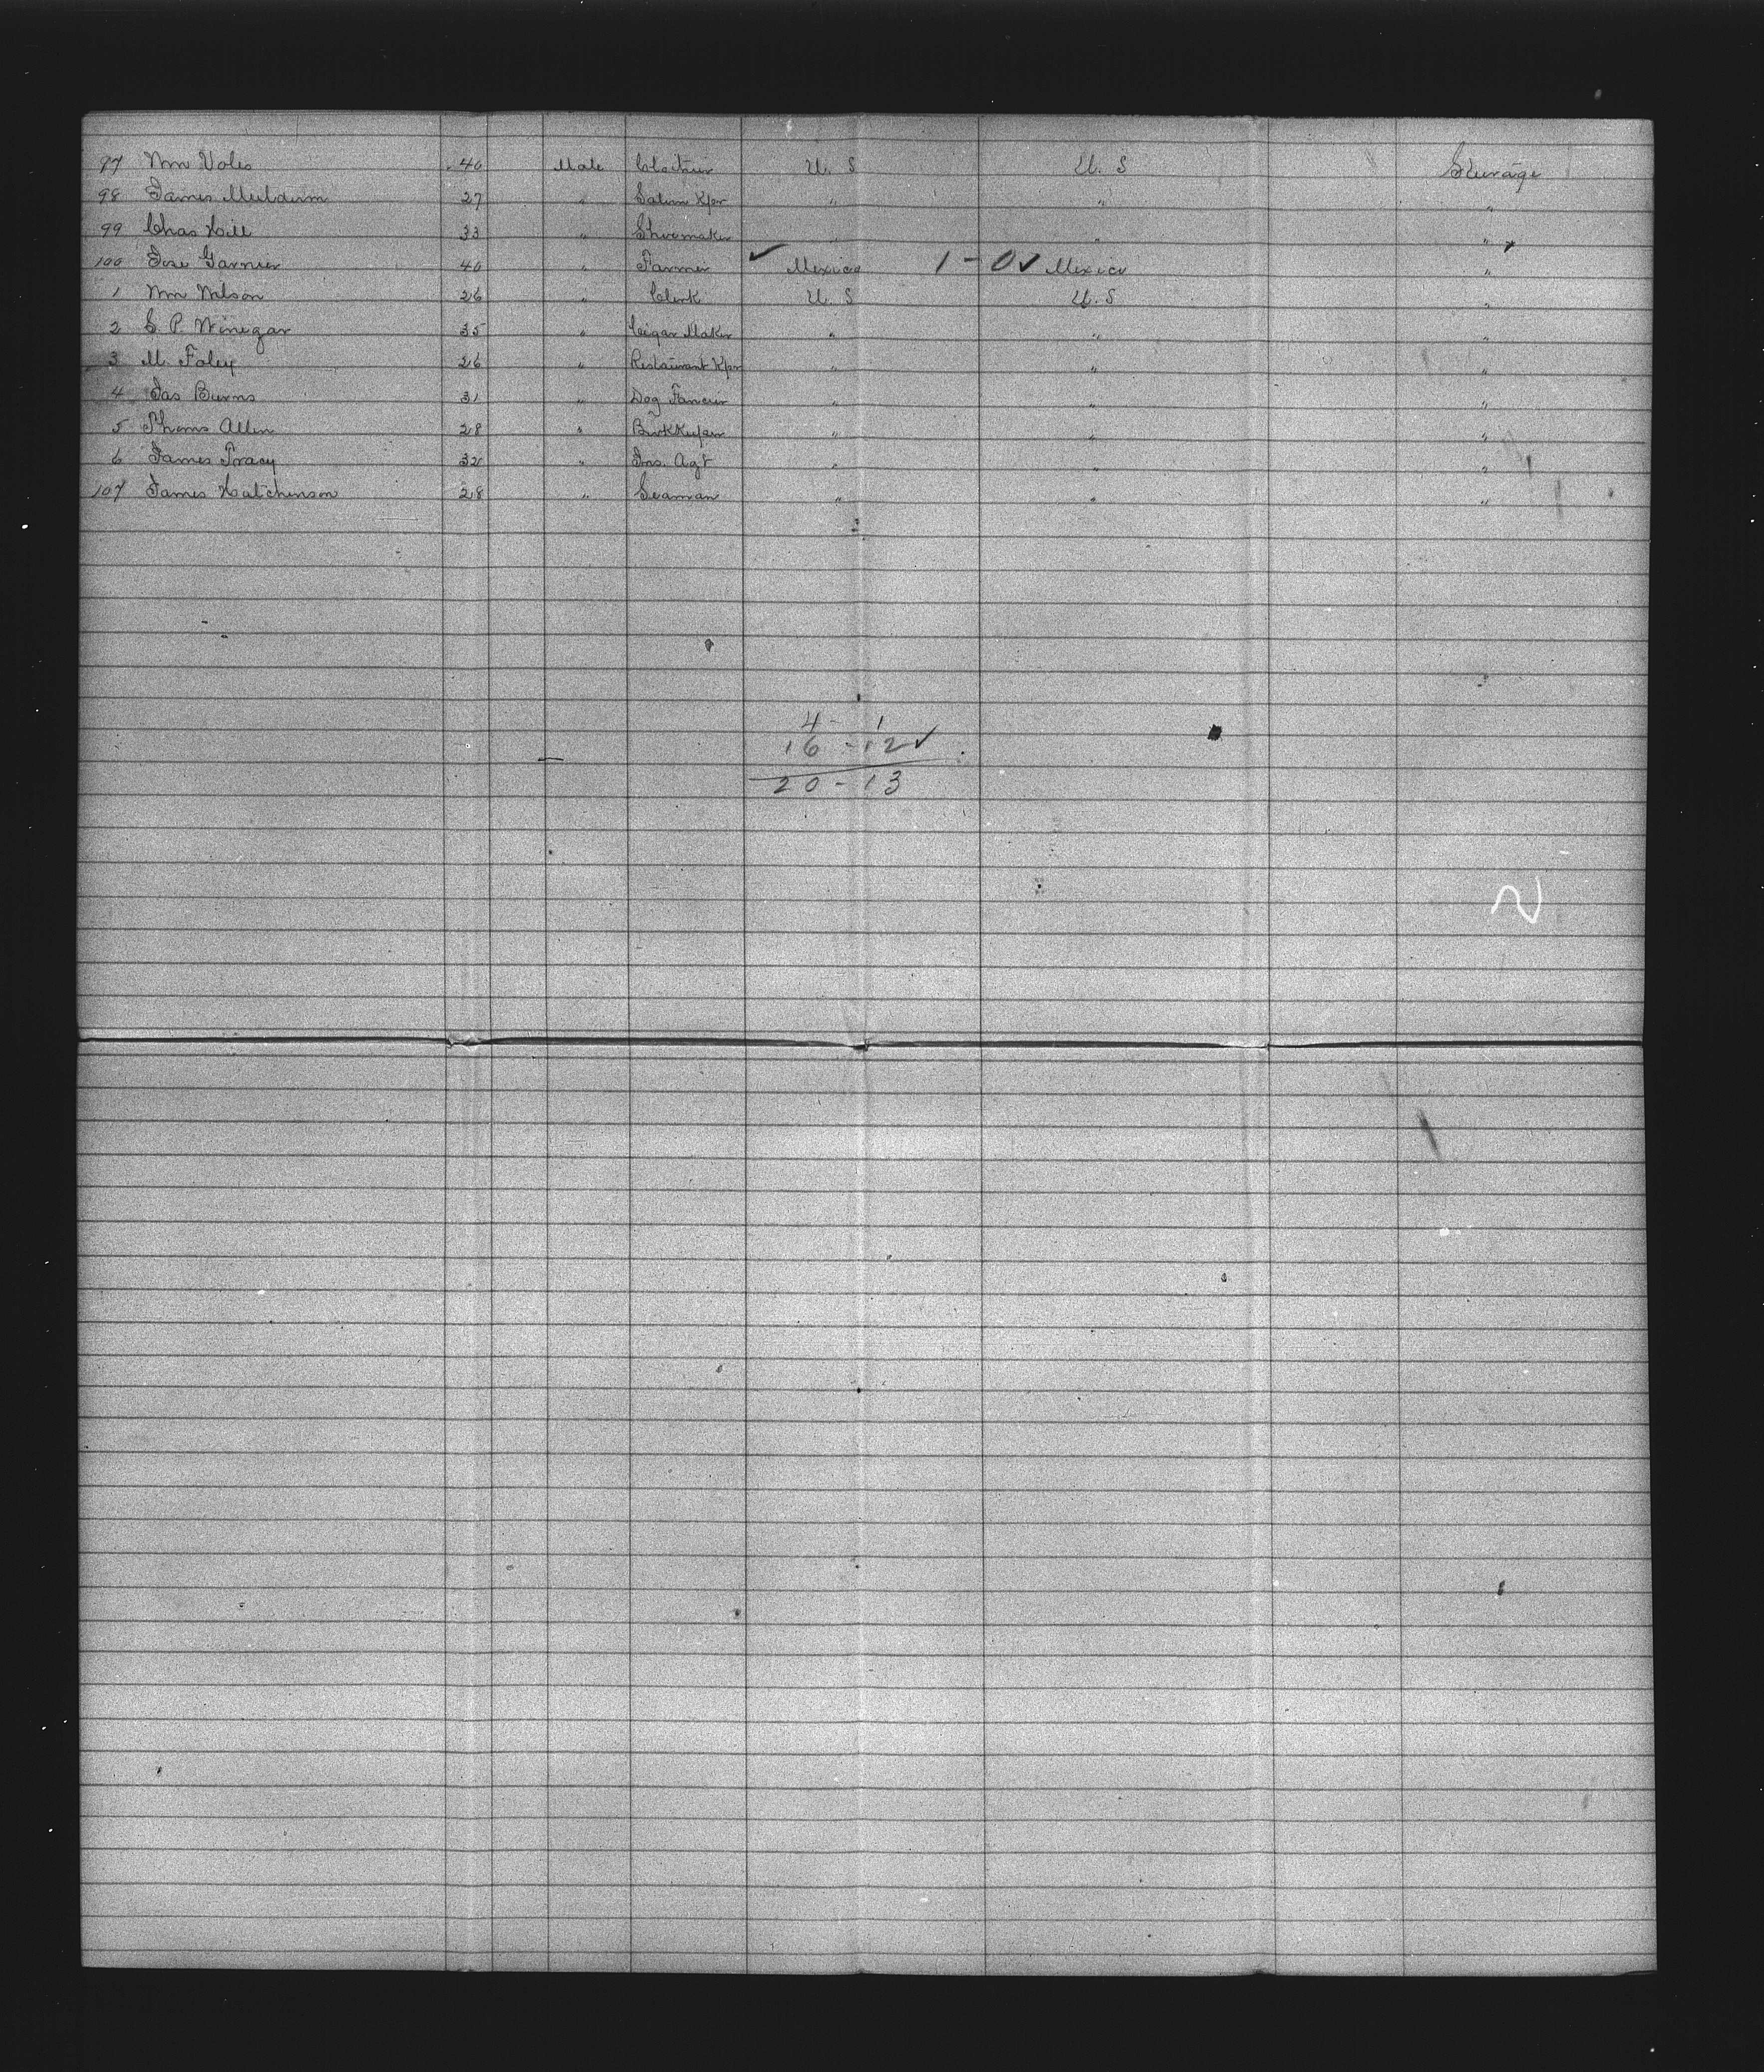 97 Wm Voles 40 Male U. S U. S Steerage
98 James Muldum 27 " Saloon Kpr " " "
99 Chas Hill 33 " Shoemaker " " "
100 Jose Garnier 40 " Farmer ✓ Mexico 1 - 0 ✓ Mexico "
1 Wm Wilson 26 " Clerk U. S U. S "
2 C. P. Winegar 35 " Cigar Maker " " "
3 M Foley 26 " Restaurant Kpr " " "
4 Jas Burns 31 " Dog Fancier " " "
5 Thoms Allen 28 " " " "
6 James Tracy 32 " Ins. Agt " " "
107 James Hutchinson 28 " Seaman " " "
4 - 1
16 - 12 ✓
20 - 13